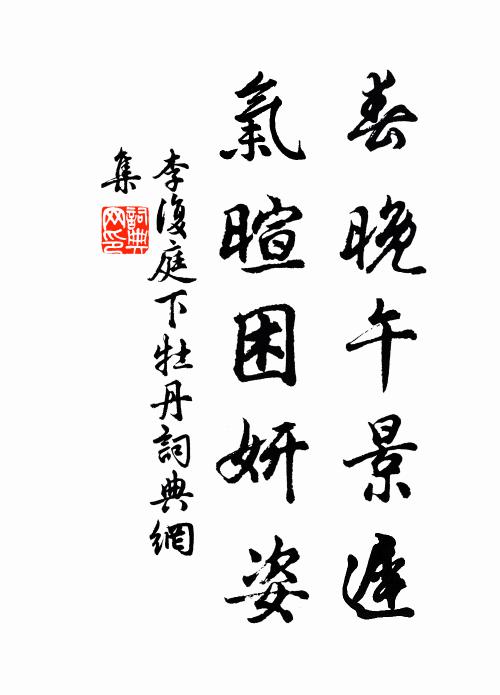 春晚午景遲
氣暄困妍姿
李復庭下牡丹詞典網
集
詞典网印